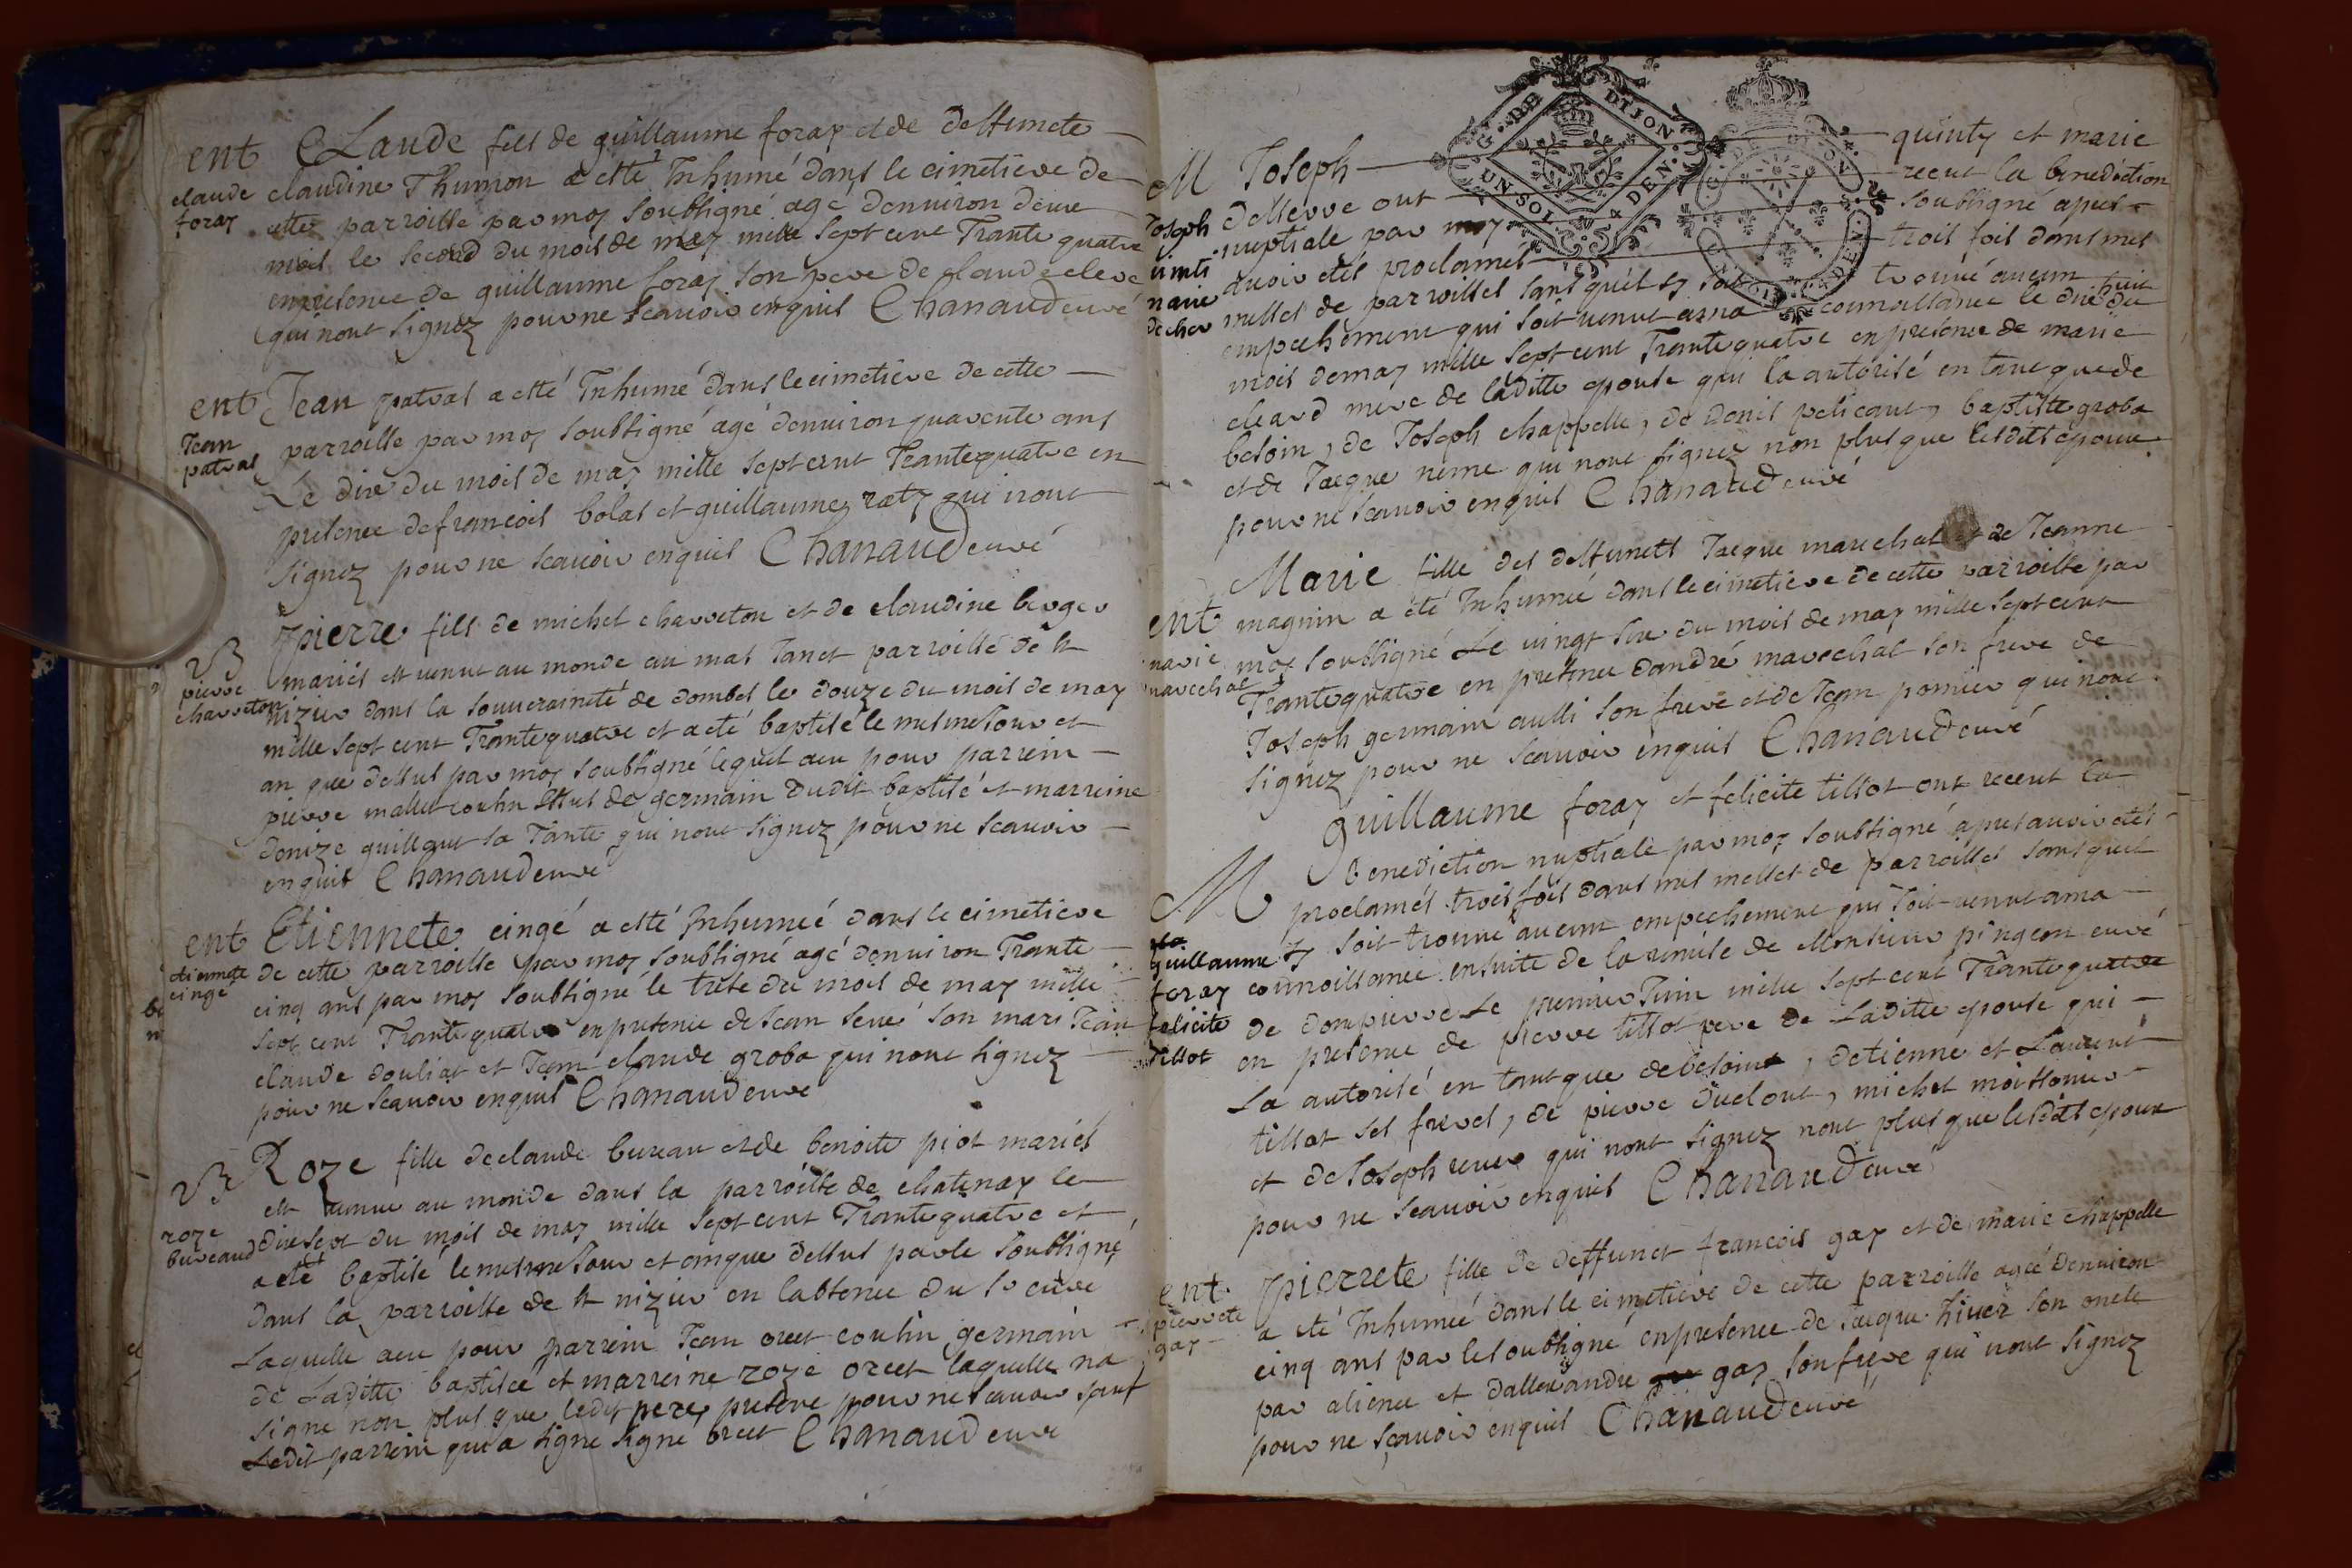 ent
claude
foray
CLaude fils de guillaume foray et de deffuncte
claudine Thumon a esté Inhumé dans le cimetiere de
cette parroisse par moy soubsigné agé denviron deux
mois le second du mois de may mille sept cent Trante quatre
en presence de guillaume foray son pere de claude clere
qui nont signez pour ne scauoir enquis Chanaud curé
ent
Jean
patras
Jean patras a esté Inhumé dans le cimetiere de cette
parroisse par moy soubsigné agé denuiron quarente ans
Le dix du mois de may mille sept cent Trantequatre en
presence de francois bolas et guillaume raty qui nont
signez pour ne scauoir enquis Chanaud curé
B
pierre
charreton
pierre fils de michel charreton et de claudine berger
mariés est venu au monde au mas Tanet parroisse de st
nizier dans la souueraineté de dombes le douze du mois de may
mille sept cent Trantequatre et a eté baptisé le mesme Jour et
an que dessus par moy soubsigné lequel a eu pour parrein
pierre mallet cousin issus de germain dudit baptisé et marreine
denize guillout sa Tante qui nont signez pour ne scauoir
enquis Chanaud curé
ent
etiennete
cingé
Etiennete cingé a esté Inhumée dans le cimetiere
de cette parroisse par moy soubsigné agé denuiron Trante
cinq ans par moy soubsigné le treze du mois de may mille
sept cent Trantequatre en presence de Jean seue son mari Jean
claude douliat et Jean claude grobo qui nont signez
pour ne scauoir enquis Chanaud curé
B
roze
bureaud
Roze fille de claude bureau et de benoite piot mariés
est venue au monde dans la parroisse de chatenay le
dixsept du mois de may mille sept cent Trantequatre et
a eté baptisé le mesme Jour et an que dessus par le soubsigné
dans la parroisse de st nizier en labsence du sr curé
Laquelle a eu pour parrein Jean orcet cousin germain
de Laditte baptisée et marreine roze orcet laquelle na
signe non plus que ledit pere present pour ne scauoir sauf
Ledit parrein qui a signe signe orcet Chanaud curé
M
Joseph
quinti
marie
decher
Joseph quinty et marie
desserre ont receut la benediction
nuptiale par moy soubsigné apres
auoir etés proclamés trois fois dans mes
messes de parroisses sans quil sy soit trouué aucun
empechement qui soit venut a ma connoissance le dixhuit du
mois de may mille sept cent Trantequatre en presence de marie
cleard mere de laditte epouse qui la autorisé en tant que de
besoin, de Joseph chappelle, de denis pelicant, baptiste grobo
et de Jacque neme qui nont signez non plus que lesdits epoux
pour ne scauoir enquis Chanaud curé
ent
marie
marechal
Marie fille des deffuncts Jacque marechal et de Jeanne
magnin a eté Inhumée dans le cimetiere de cette parroisse par
moy soubsigné Le vingt six du mois de may mille sept cent
Trantequatre en presence dandré marechal son frere de
Joseph germain aussi son frere et de Jean pomier qui nont
signez pour ne scauoir enquis Chanaud curé
M
guillaume
foray
felicite
tissot
guillaume foray et felicite tissot ont receut la
benediction nuptiale par moy soubsigné apres auoir etés
proclamés trois fois dans mes messes de parroisses sans quil
sy soit trouué aucun empechement qui soit venut a ma
connoissance ensuite de la remise de Monsieur pingeon curé
de dompierre Le premier Juin mille sept cent Trantequatre
en presence de pierre tissot pere de Laditte epouse qui
La autorisé en tant que de besoin, detienne et Laurent
tissot ses freres, de pierre duclout, michel moissonier
et de Joseph reuer qui nont signez nont plus que lesdits epoux
pour ne scauoir enquis Chanaud curé
ent
pierrete
gay
pierrete fille de deffunct francois gay et de marie chappelle
a eté Inhumée dans le cimetiere de cette parroisse agée denuiron
cinq ans par le soubsigné en presence de Jacque hiuer son oncle
par aliance et dallexandre gay son frere qui nont signez
pour ne scauoir enquis Chanaud curé
G. DE DIJON
UN SOL 4 DEN.